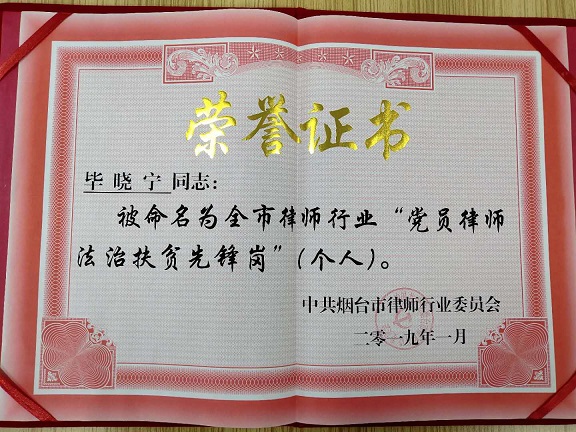 荣誉证书
毕晓宁同志：
被命名为全市律师行业“党员律师
法治扶贫先锋岗”（个人）。
中共烟台市律师行业委员会
二零一九年一月